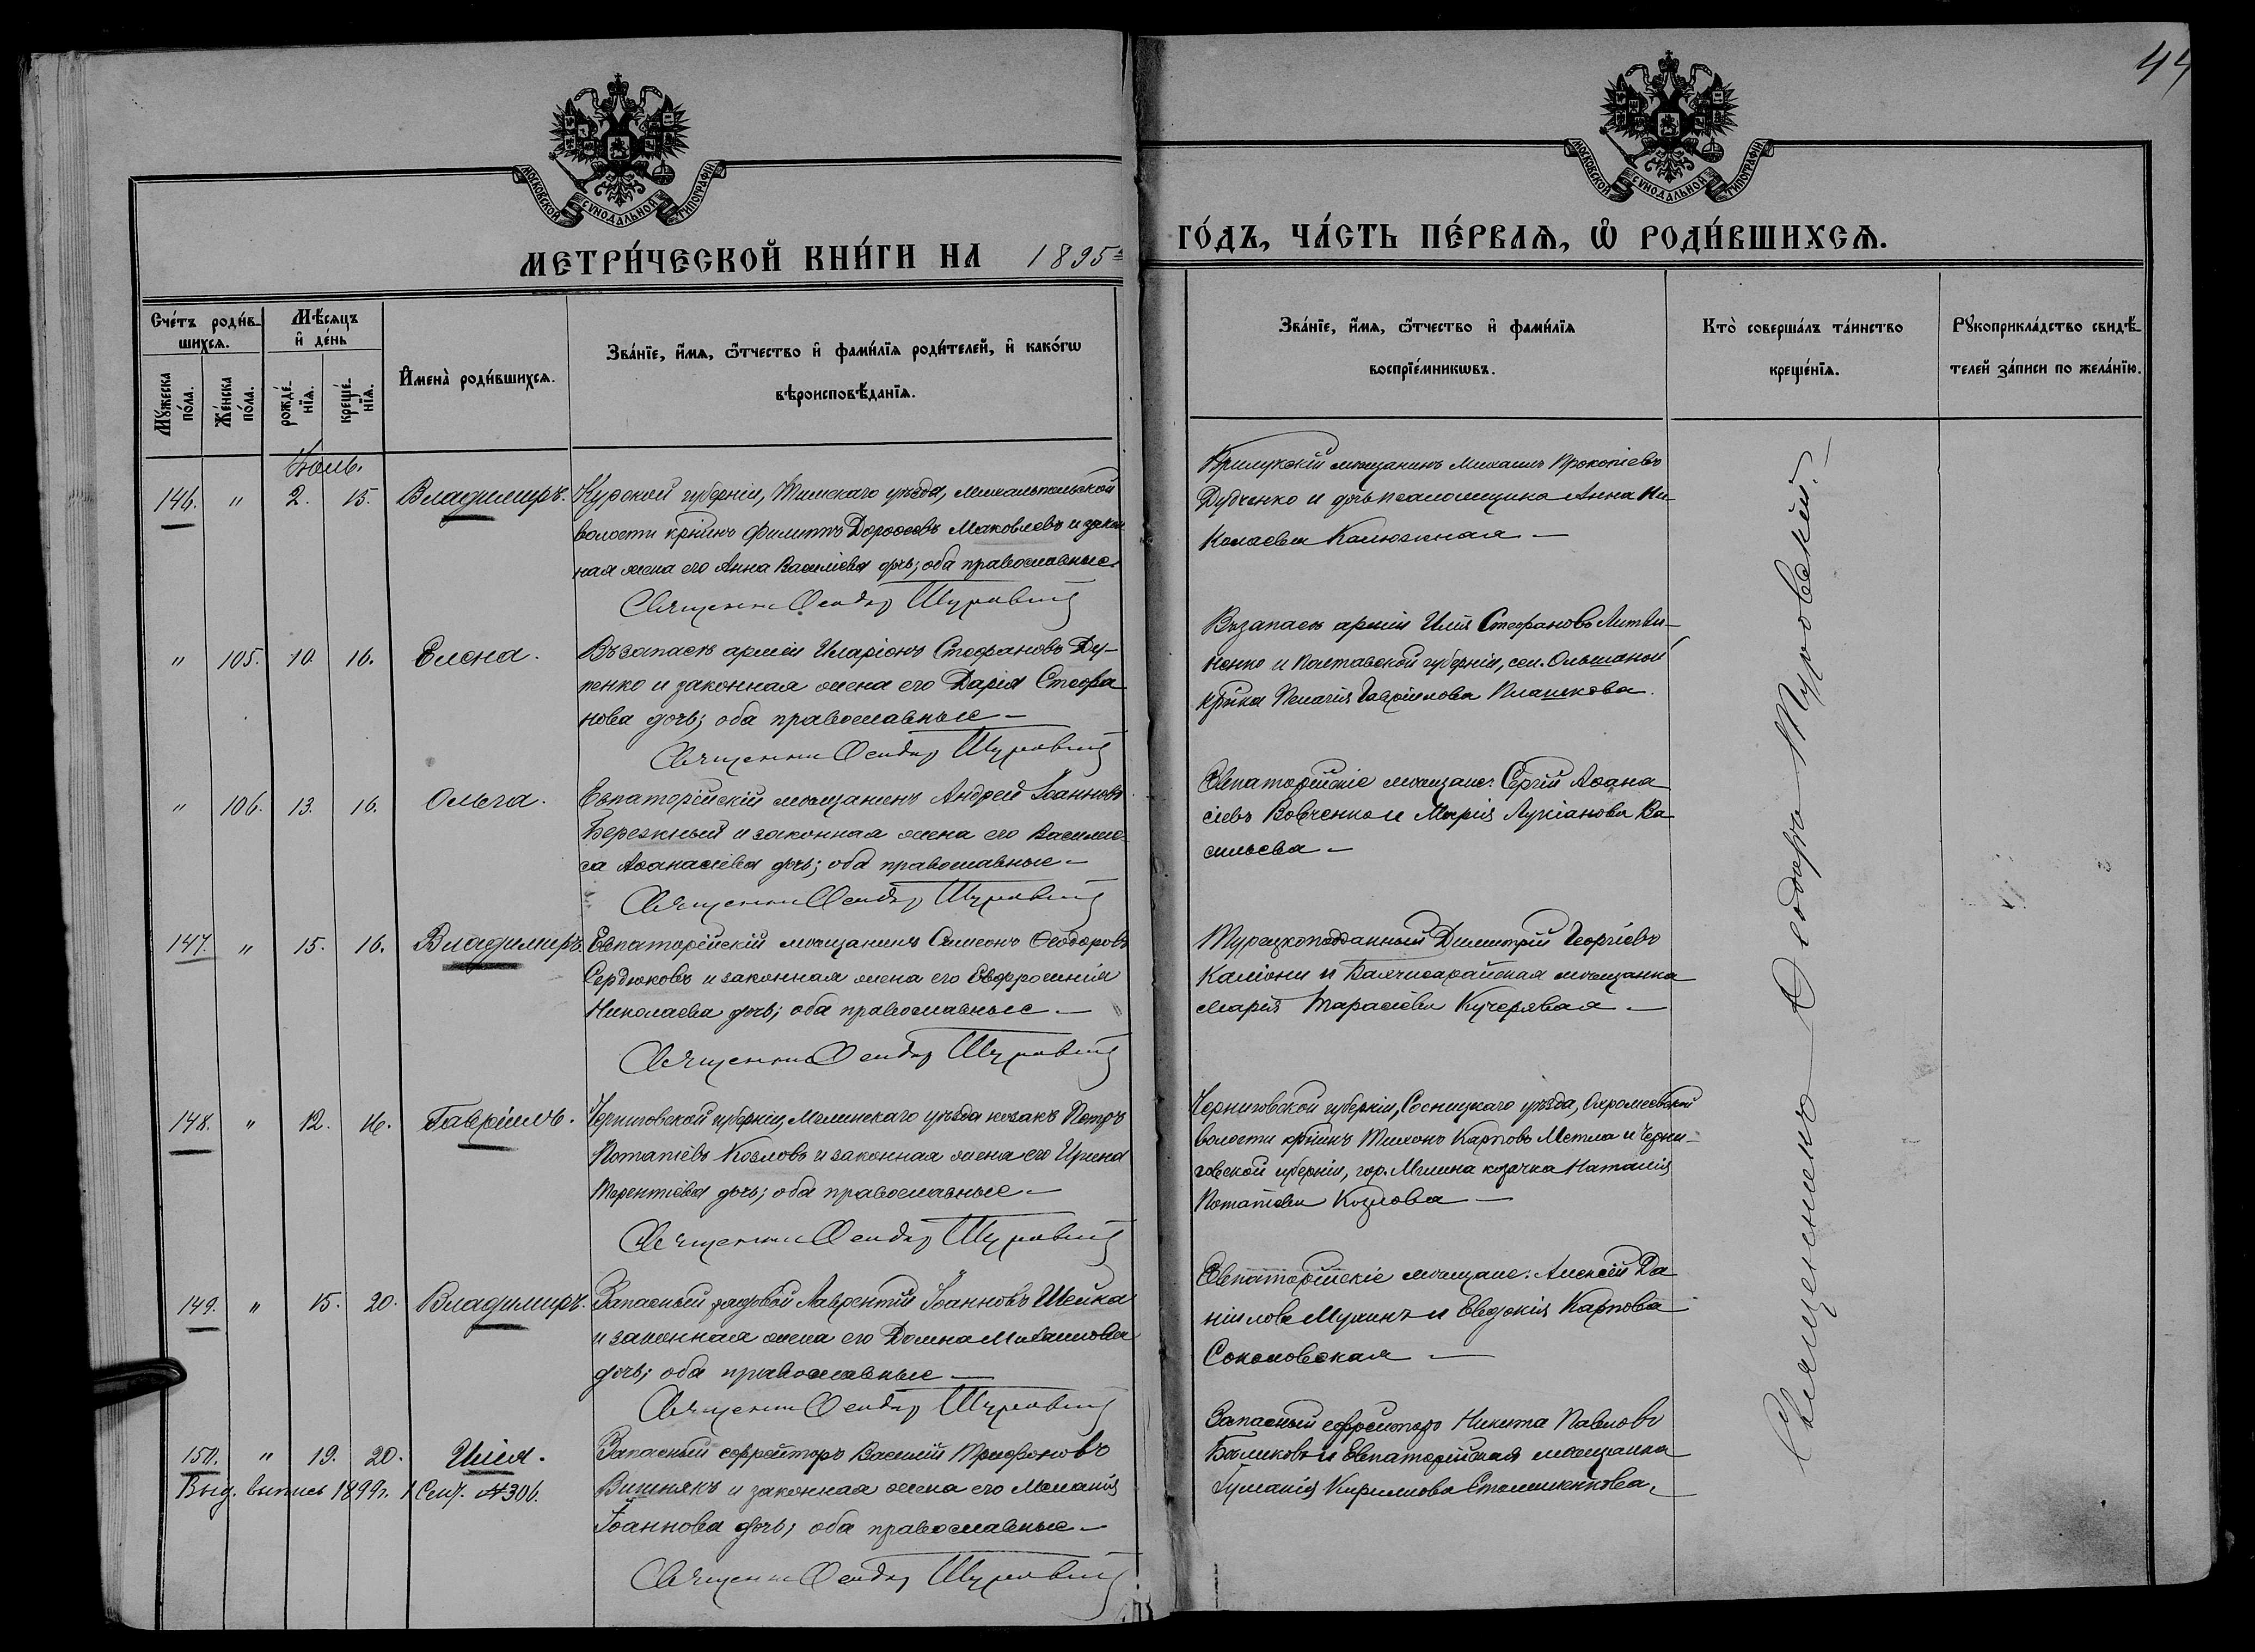 44
МОСКОВСКОЙ СѴНОДАЛЬНОЙ ТИПОГРАФІИ
МОСКОВСКОЙ СѴНОДАЛЬНОЙ ТИПОГРАФІИ
МЕТРИ́ЧЕСКОЙ КНИ́ГИ НА 1895
ГО́ДЪ, ЧА́СТЬ ПЕ́РВАѦ, Ѽ РОДИ́ВШИХСѦ.
Сче́тъ роди́в-
шихсѧ.
Мѣ́сѧцъ
и҆ де́нь
Мꙋ́жеска
по́ла.
Же́нска
по́ла.
рожде́-
нїѧ.
креще́-
нїѧ.
И҆мена̀ роди́вшихсѧ.
Зва́нїе, и҆́мѧ, ѻ҆́тчество и҆ фами́лїѧ роди́телей, и҆ како́гѡ
вѣроисповѣ́данїѧ.
Зва́нїе, и҆́мѧ, ѻ҆́тчество и҆ фами́лїѧ
воспрїе́мникѡвъ.
Кто̀ соверша́лъ та́инство
креще́нїѧ.
Рꙋкоприкла́дство свидѣ́-
телей за́писи по жела́нїю.
Іюль.
146. " 2. 15. Владимиръ. Курской губерніи, Тимскаго уѣзда, Михальпольской
волости кр̃нинъ Филиппъ Дороѳеевъ Маковлевъ и закон
ная жена его Анна Василіева дочь; оба православные.
Священникъ Ѳеодоръ
Прилукскій мѣщанинъ Михаилъ Прокопіевъ
Дубченко и дочь псаломщика Анна Ни-
колаевна Калюжная —
" 105. 10. 16. Елена. Въ запасѣ арміи Иларіонъ Стефановъ Ду-
ценко и законная жена его Дарія Стефа
нова дочь; оба православные —
Священникъ Ѳеодоръ
Въ запасѣ арміи Илія Стефановъ Литви-
ненко и Полтавской губерніи, сел. Ольшаной
кр̃нка Пелагія Гавріилова Плашкова.
" 106. 13. 16. Ольга. Евпаторійскій мѣщанинъ Андрей Іоанновъ
Бережный и законная жена его Васили-
са Аѳанасіева дочь; оба православные —
Священникъ Ѳеодоръ
Евпаторійскіе мѣщане: Сергій Аѳана
сіевъ Вовченко и Марія Лукіанова Ва
сильева —
147. " 15. 16. Владимиръ. Евпаторійскій мѣщанинъ Симеонъ Ѳеодоровъ
Сердюковъ и законная жена его Евфросинія
Николаева дочь; оба православные —
Священникъ Ѳеодоръ
Турецкоподданный Димитрій Георгіевъ
Каліони и Бахчисарайская мѣщанка
Марія Тарасіева Кучерявая —
148. " 12. 16. Гавріилъ. Черниговской губерніи, Мглинскаго уѣзда козакъ Петръ
Потапіевъ Козловъ и законная жена его Ирина
Терентіева дочь; оба православные —
Священникъ Ѳеодоръ
Черниговской губерніи, Сосницкаго уѣзда, Охромеевской
волости кр̃нинъ Тихонъ Карповъ Метла и Черни-
говской губерніи, гор. Мглина козачка Наталія
Потапіева Козлова —
149. " 15. 20. Владимиръ. Запасный рядовой Лаврентій Іоанновъ Шейка
и законная жена его Домна Михаилова
дочь; оба православные —
Священникъ Ѳеодоръ
Евпаторійскіе мѣщане: Алексій Да
ніиловъ Мукинъ и Евдокія Карпова
Соколовская —
150. " 19. 20. Илія. Запасный ефрейторъ Василій Трифоновъ
Выд. выпись 1899 г. 1 Сент. № 306. Вишнякъ и законная жена его Меланія
Іоаннова дочь; оба православные —
Священникъ Ѳеодоръ
Запасный ефрейторъ Никита Павловъ
и Евпаторійская мѣщанка
Кириллова
Священникъ Ѳеодоръ Туровскій.